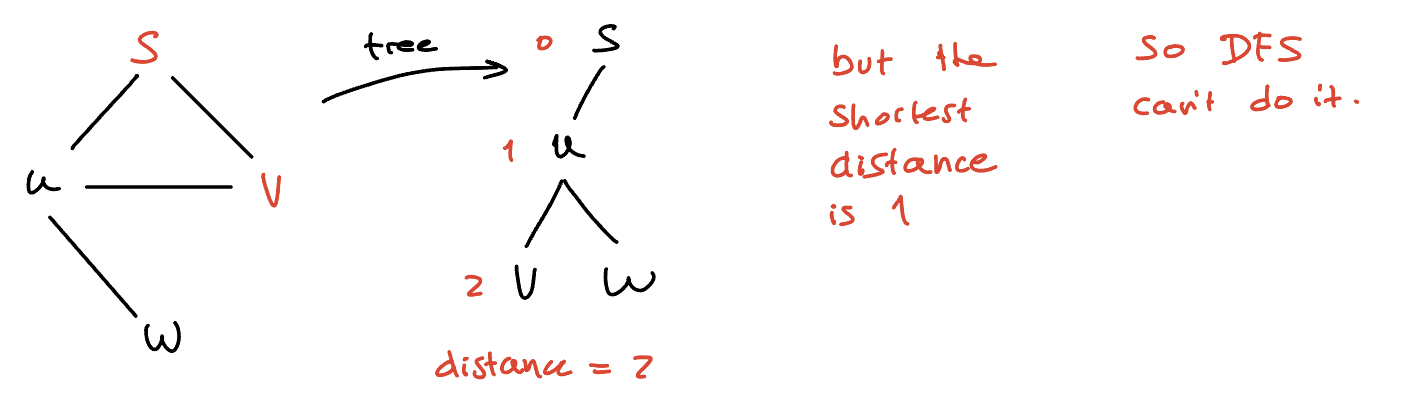 S
u
V
W
tree
0 S
1 u
2 V W
distance = 2
but the
shortest
distance
is 1
So DFS
can't do it.